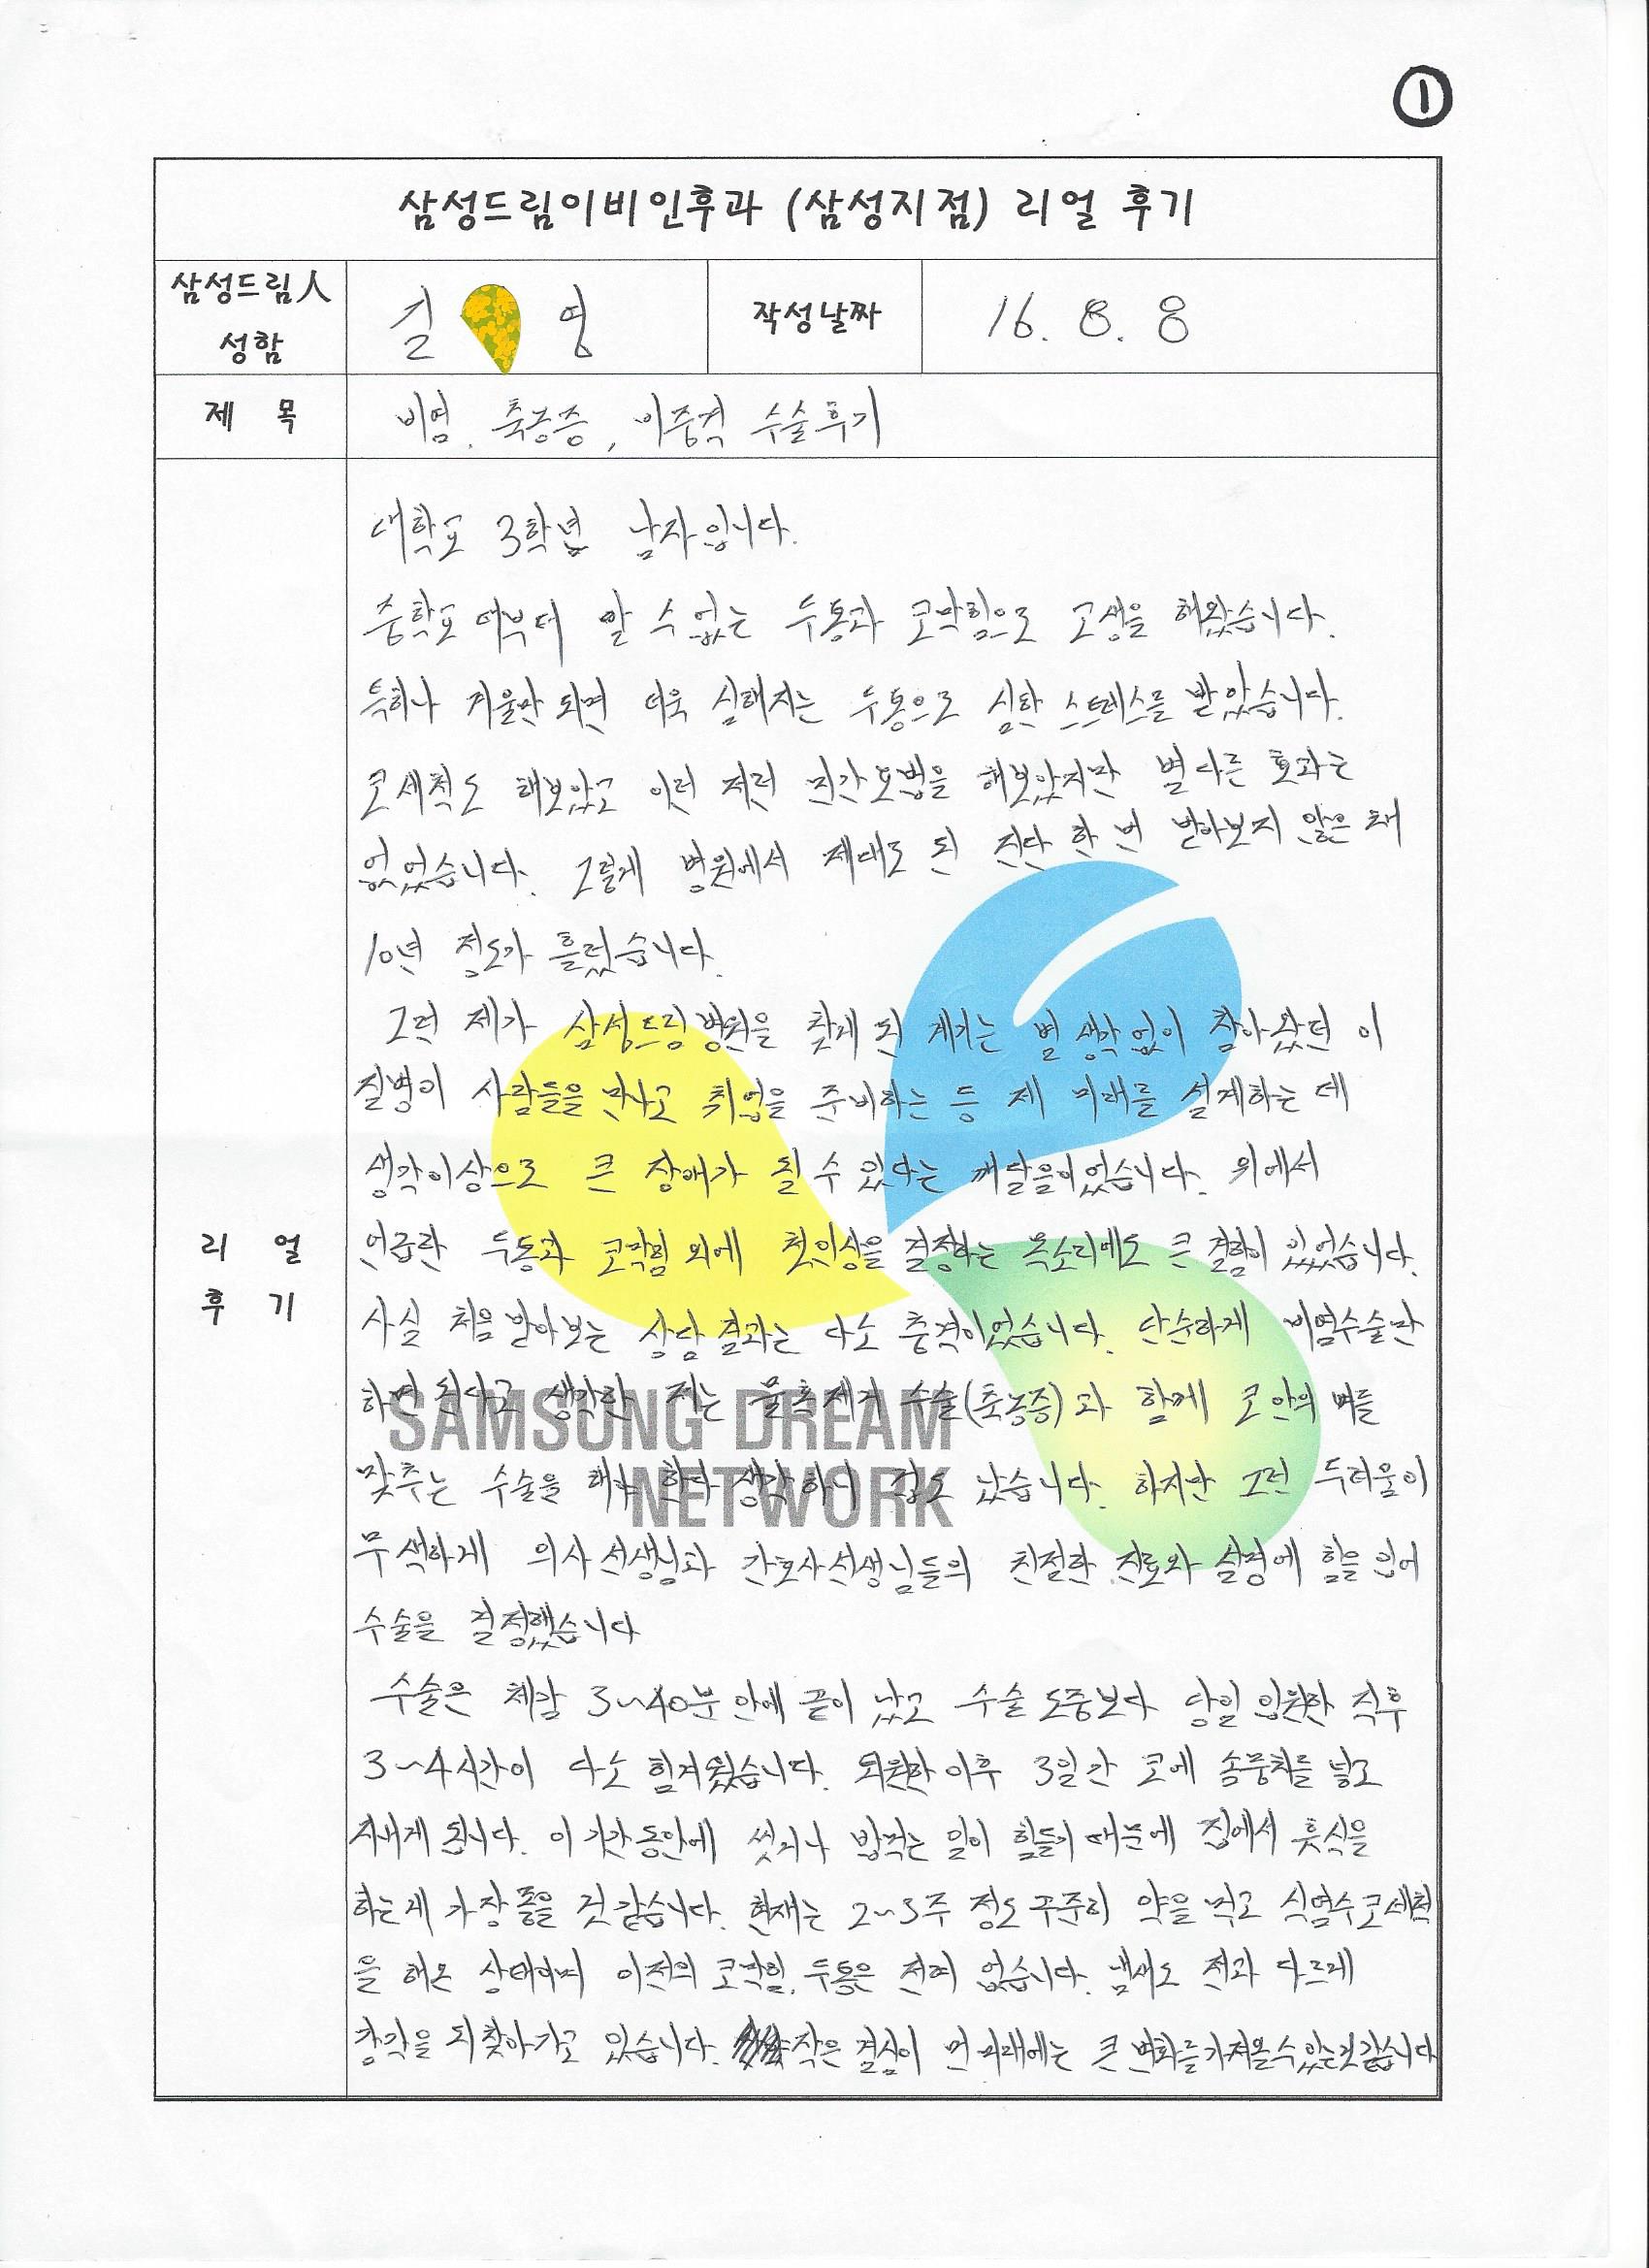 ①
삼성드림이비인후과 (삼성지점) 리얼 후기
삼성드림人
성함
길 영
작성날짜
16. 8. 8
제 목
비염, 축농증, 비중격 수술후기
대학교 3학년 남자입니다.
중학교 때부터 알 수 없는 두통과 코막힘으로 고생을 해왔습니다.
특히나 겨울만 되면 더욱 심해지는 두통으로 심한 스트레스를 받았습니다.
코세척도 해보았고 이러 저러 민간요법을 해보았지만 별다른 효과는
없었습니다. 그렇게 병원에서 제대로 된 진단 한 번 받아보지 않은 채
10년 정도가 흘렀습니다.
그런 제가 삼성드림병원을 찾게 된 계기는 별 생각없이 참아왔던 이
질병이 사람들을 만나고 취업을 준비하는 등 제 미래를 설계하는 데
생각이상으로 큰 장애가 될 수 있다는 깨달음이었습니다. 위에서
언급한 두통과 코막힘 외에 첫인상을 결정하는 목소리에도 큰 결함이 있었습니다.
사실 처음 받아보는 상담 결과는 다소 충격이었습니다. 단순하게 비염수술만
하면 된다고 생각한 저는 물혹제거 수술(축농증)과 함께 코 안의 뼈를
맞추는 수술을 해야 한다 생각하니 겁도 났습니다. 하지만 그런 두려움이
무색하게 의사선생님과 간호사선생님들의 친절한 진료와 설명에 힘을 입어
수술을 결정했습니다
리 얼
후 기
수술은 체감 3~40분 안에 끝이 났고 수술 도중보다 당일 입원한 직후
3~4시간이 다소 힘겨웠습니다. 퇴원한 이후 3일간 코에 솜뭉치를 넣고
지내게 됩니다. 이 기간동안에 씻거나 밥먹는 일이 힘들기 때문에 집에서 휴식을
하는게 가장 좋을 것 같습니다. 현재는 2~3주 정도 꾸준히 약을 먹고 식염수코세척
을 해온 상태이며 이전의 코막힘, 두통은 전혀 없습니다. 냄새도 전과 다르게
감각을 되찾아가고 있습니다. 작은 결심이 먼 미래에는 큰 변화를 가져올 수 있는 것 같습니다
SAMSUNG DREAM
NETWORK